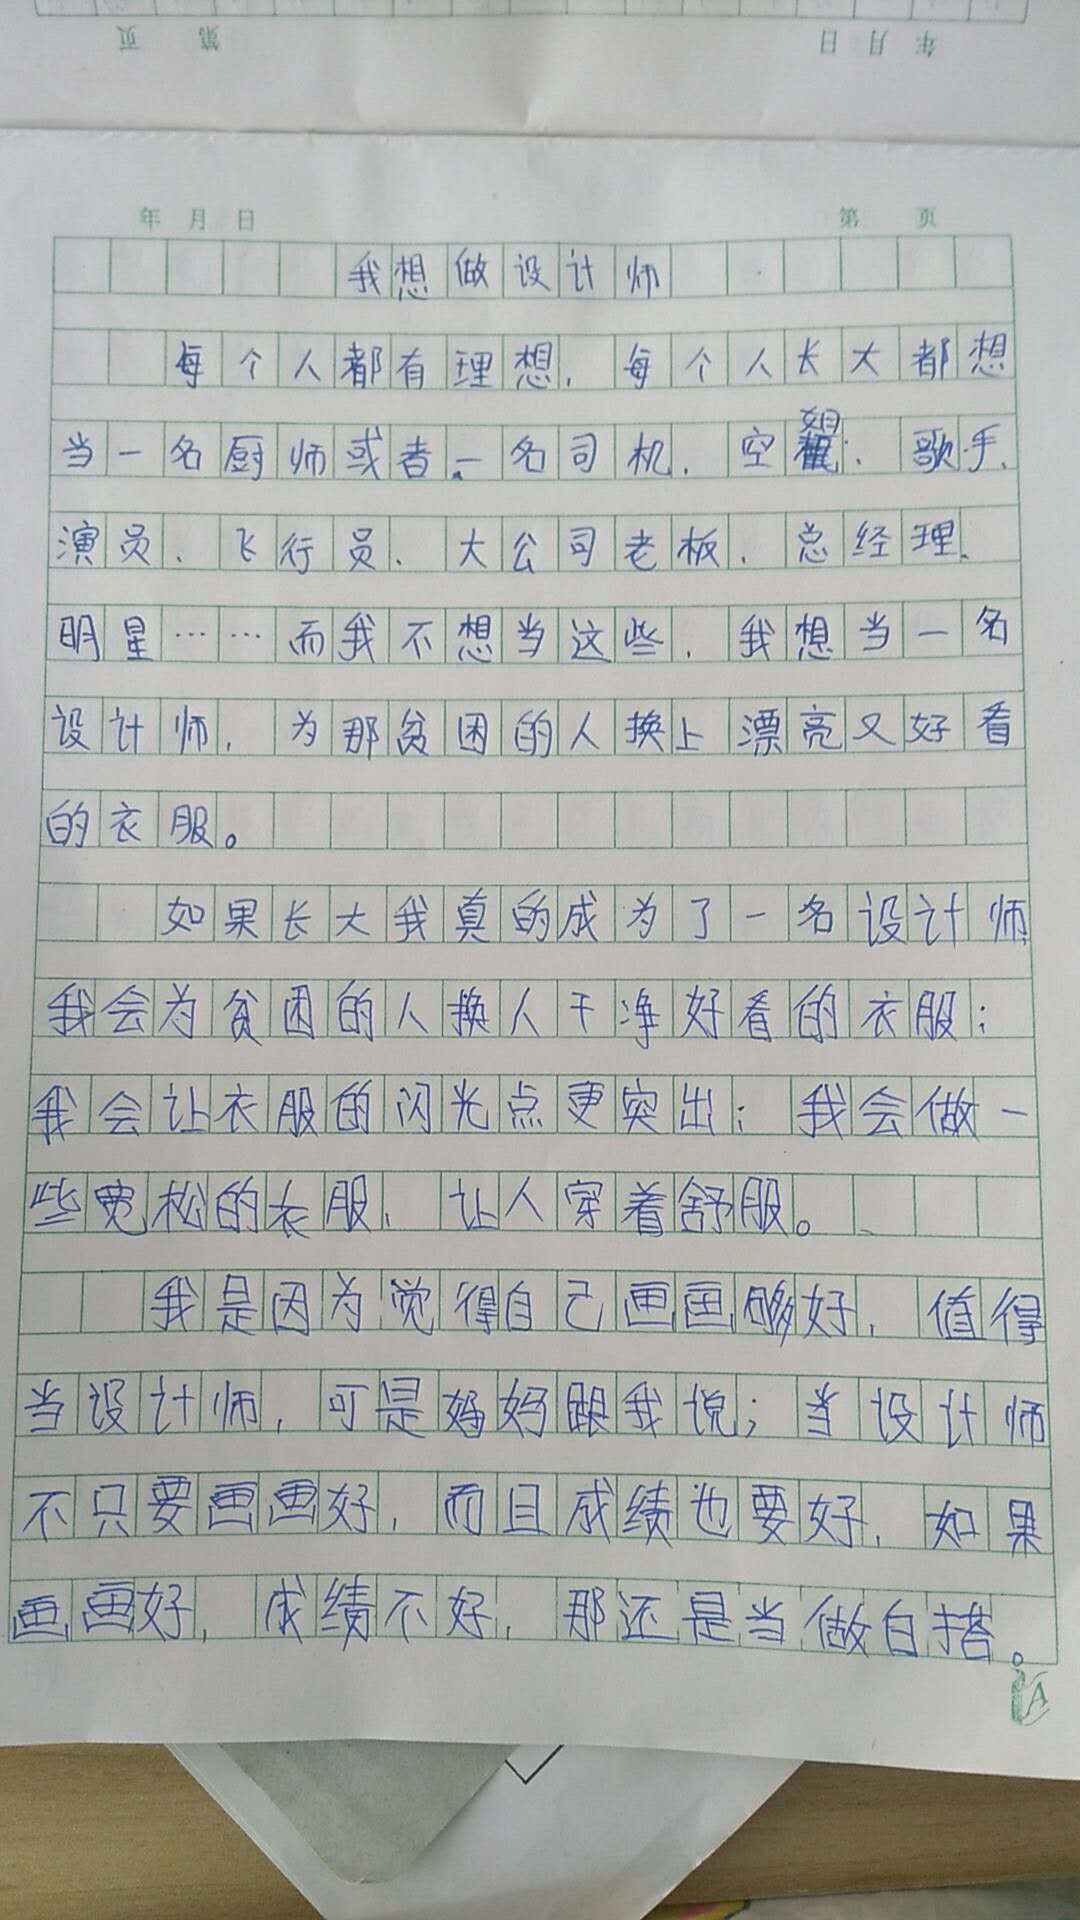 页 第 日 月 年
年 月 日 第 页
我想做设计师
每个人都有理想，每个人长大都想
当一名厨师或者一名司机、空姐、歌手、
演员、飞行员、大公司老板、总经理、
明星……而我不想当这些，我想当一名
设计师，为那贫困的人换上漂亮又好看
的衣服。
如果长大我真的成为了一名设计师
我会为贫困的人换人干净好看的衣服；
我会让衣服的闪光点更突出；我会做一
些宽松的衣服，让人穿着舒服。
我是因为觉得自己画画够好，值得
当设计师，可是妈妈跟我说；当设计师
不只要画画好，而且成绩也要好，如果
画画好，成绩不好，那还是当做白搭。